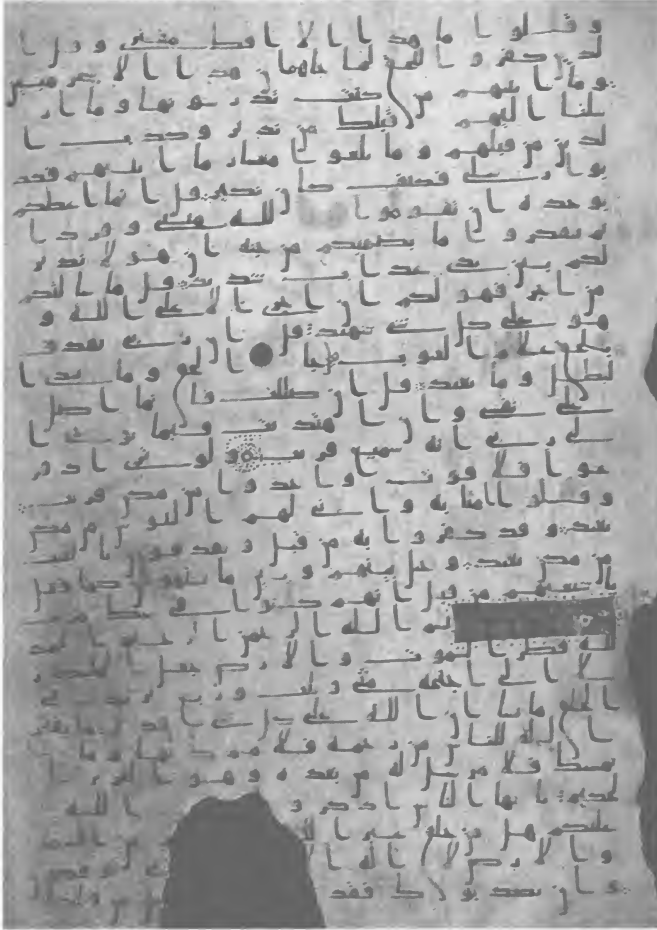 و قلو ا ما هدا ا لا ا فك مفترى و قل ا
لدين كفر و ا للحق لما جاهم ان هدا ا لا سحر مبين
و ما ا تينهم من كتب يدر سو نها و ما ا ر
سلنا ا ليهم قبلك من ندير و كدب ا
لدين من قبلهم و ما بلغو ا معشار ما ا تينهم فكد
بو ا ر سلي فكيف كان نكير قل ا نما ا عظكم
بو حده ا ن تقو مو ا لله مثنى و فر د ا
ثم تتفكر و ا ما بصحبكم من جنه ا ن هو ا لا ندير
لكم بين يدي عد ا ب شديد قل ما سا لتكم
من ا جر فهو لكم ا ن ا جري ا لا على ا لله و
هو على كل شي شهيد قل ا ن ربي يقدف
بالحق علم ا لغيوب قل جا ا لحق و ما يبدى ا
لبطل و ما يعيد قل ا ن ضللت فا نما ا ضل
على نفسي و ا ن ا هتديت فبما يو حي ا
لي ر بي ا نه سميع قر يب و لو ترى ا د فز
عو ا فلا فو ت و ا خد و ا من مكن قر يب
و قلو ا ا منا به و ا نى لهم ا لتنو ش من مكن
بعيد و قد كفر و ا به من قبل و يقد فو ن با لغيب
من مكن بعيد و حيل بينهم و بين ما يشتهو ن كما فعل
با شيعهم من قبل ا نهم كنو ا في شك مر يب
ا لله ا لر حمن ا لر حيم ا لحمد
لله فطر ا لسمو ت و ا لا ر ض جعل ا لملئكه ر
سلا ا و لي ا جنحه مثنى و ثلث و ر بع يز يد في
ا لخلق ما يشا ا ن ا لله على كل شي قد ير ما يفتح
ا لله للنا س من ر حمه فلا ممسك لها و ما
يمسك فلا مر سل له من بعده و هو ا لعز يز ا
لحكيم يا يها ا لنا س ا د كر و ا ا لله
عليكم هل من خلق غير ا لله من ا لسما
و ا لا ر ض لا ا له ا لا
و ا ن يكد بو ك فقد